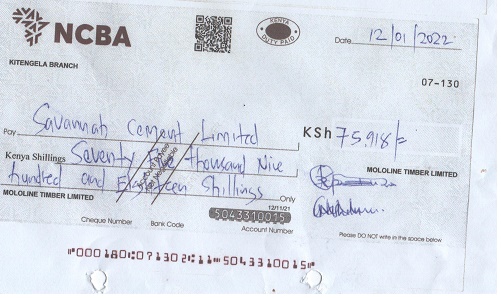 NCBA
KENYA
DUTY PAID
Date 12/01/2022
KITENGELA BRANCH
07-130
Pay Savannah Cement Limited
KSh 75,918/=
Kenya Shillings Seventy thousand Nine
hundred and Shillings Only
MOLOLINE TIMBER LIMITED
MOLOLINE TIMBER LIMITED
12/11/21
5043310015
Cheque Number Bank Code Account Number
Please DO NOT write in the space below
"000180:07130 2:11 5043310015"